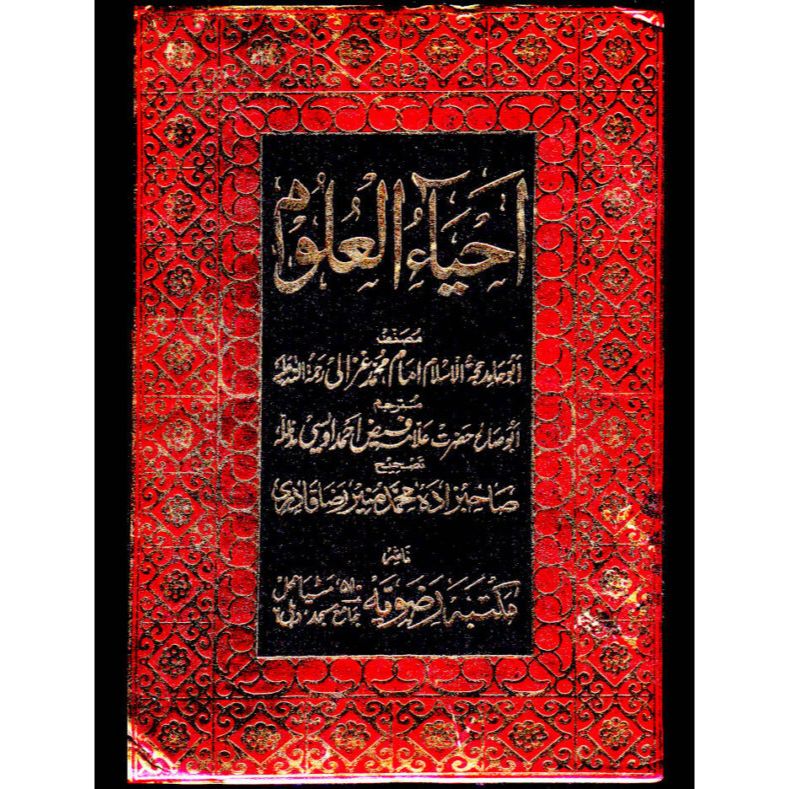 احیاءُ العلُوم
مُصنّف
ابو حامد حجۃ الاسلام امام محمد غزالی رحمۃ اللہ علیہ
مُترجم
ابو صالح حضرت علامہ فیض احمد اویسی مدظلہ
تصحیح
صاحبزادہ محمد منیر رضا قادری
ناشر
مکتبہ رضویہ مٹیا محل
جامع مسجد دہلی